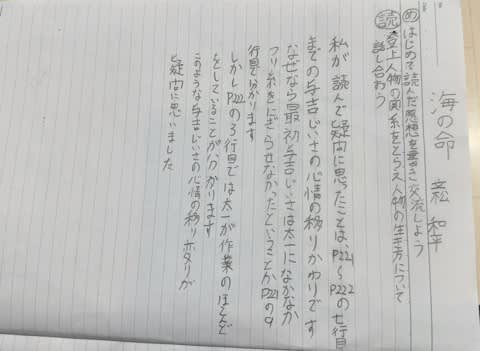 海の命 立松 和平
め はじめて読んだ感想を書き交流しよう
読 登上人物の関系をとらえ人物の生き方について
話し合おう
私が読んで疑問に思ったことは、P221〜P222の七行目
までの与吉じいさの心情の移りかわりです
なぜなら最初与吉じいさは太一になかなか
つり糸をにぎらせなかったということがP221の9
行目で分かります
しかしP222の3行目では太一が作業のほとんど
をしていることが分かります
このような与吉じいさの心情の移り
疑問に思いました